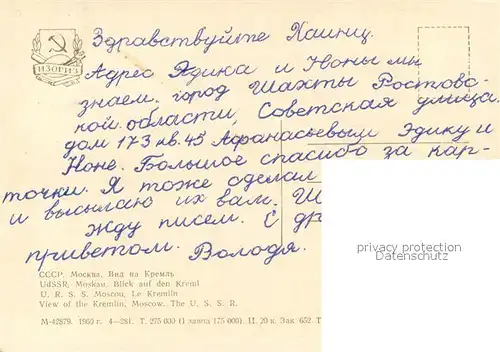 Здравствуйте Хаинц.
Адрес Эдика и Ноны мы
знаем. город Шахты Ростовс-
кой области, Советская улица
дом 173 кв. 45 Афанасьевым Эдику и
Ноне. Большое спасибо за кар-
точки. Я тоже сделал
и высылаю их вам.
жду писем. С др
приветом. Володя.
ИЗОГИЗ
privacy protection
Datenschutz
СССР. Москва. Вид на Кремль
UdSSR, Moskau, Blick auf den Kreml
U. R. S. S. Moscou, Le Kremlin
View of the Kremlin, Moscow. The U. S. S. R.
М-42879. 1960 г. 4—281. Т. 275 000 (I завод 175 000). Ц. 20 к. Зак. 652. Т